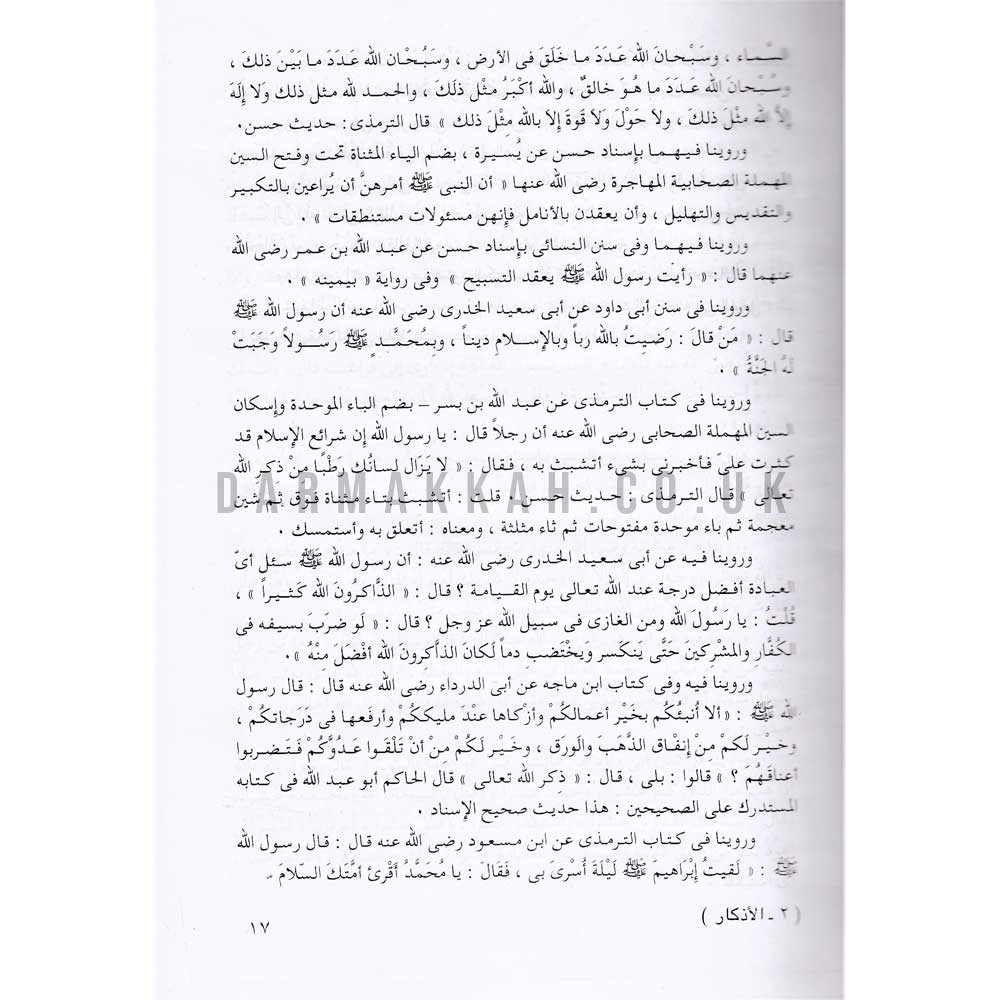 السَّماء ، وسَبْحانَ الله عَدَدَ ما خَلَقَ فى الأرض ، وسَبُحْان الله عَدَدَ ما بَيْنَ ذلكَ ،
وسُبْحانَ الله عَدَدَ ما هُوَ خالقٌ ، والله أكْبَرُ مثْل ذلَكَ ، والحمد لله مثل ذلك وَلا إلَهَ
إلاَّ الله مثْلَ ذلكَ ، ولا حَوْلَ وَلا قَوةَ إلاَ بالله مِثْلَ ذلك » قال الترمذى : حديث حسن .
وروينا فيهما بإسناد حسن عن يُسيرة ، بضم الياء المثناة تحت وفتح السين
المهملة الصحابية المهاجرة رضى الله عنها « أن النبى ﷺ أمرهنَّ أن يُراعين بالتكبير
والتقديس والتهليل ، وأن يعقدن بالأنامل فإنهن مسئولات مستنطقات » .
وروينا فيهما وفى سنن النسائى بإسناد حسن عن عبد الله بن عمر رضى الله
عنهما قال : « رأيت رسول الله ﷺ يعقد التسبيح » وفى رواية « بيمينه » .
وروينا فى سنن أبى داود عن أبى سعيد الخدرى رضى الله عنه أن رسول الله ﷺ
قال : « مَنْ قالَ : رَضيتُ بالله رباً وبالإسلام ديناً ، وبمُحَمَّدٍ ﷺ رَسُولاً وَجَبَتْ
لَهُ الجَنَّةُ » .
وروينا فى كتاب الترمذى عن عبد الله بن بسر – بضم الباء الموحدة وإسكان
السين المهملة الصحابى رضى الله عنه أن رجلاً قال : يا رسول الله إن شرائع الإسلام قد
كثرت علىّ فأخبرنى بشىء أتشبث به ، فقال : « لا يَزَال لسانُك رَطْبًا منْ ذكر الله
تعالى » قال الترمذى : حديث حسن . قلت : أتشبث بتاء مثناة فوق ثم شين
معجمة ثم باء موحدة مفتوحات ثم ثاء مثلثة ، ومعناه : أتعلق به وأستمسك .
وروينا فيه عن أبى سعيد الخدرى رضى الله عنه : أن رسول الله ﷺ سئل أىّ
العبادة أفضل درجة عند الله تعالى يوم القيامة ؟ قال : « الذَّاكرُونَ الله كَثيراً » ،
قُلْتُ : يا رَسُولَ الله ومن الغازى فى سبيل الله عز وجل ؟ قال : « لَو ضرَبَ بسيفه فى
الكُفَّارِ والمشْرِكينَ حَتَّى يَنكَسر ويَخْتَضب دماً لَكانَ الذاكرونَ الله أفْضَلَ منْهُ » .
وروينا فيه وفى كتاب ابن ماجه عن أبى الدرداء رضى الله عنه قال : قال رسول
الله ﷺ : «ألا أُنبئُكُم بخَيْر أعمالكُمْ وأزْكاها عنْدَ مليككُمْ وأرفَعها فى دَرَجاتكُمْ ،
وخيْر لَكمْ منْ إنفْاق الذَّهَبَ والوَرق ، وخَيْر لَكُمْ منْ أنْ تَلْقَوا عَدُوَّكُمْ فَتَضربوا
أعناقَهُمَ ؟ » قالوا : بلى ، قال : « ذكِر الله تعالى » قال الحاكم أبو عبد الله فى كتابه
المستدرك على الصحيحين : هذا حديث صحيح الإسناد .
وروينا فى كتاب الترمذى عن ابن مسعود رضى الله عنه قال : قال رسول الله
ﷺ : « لَقيتُ إبْرَاهيمَ ﷺ لَيْلَةَ أسْرىَ بى ، فَقَالَ : يا مُحَمَّدُ أقْرئ أمَّتَكَ السَّلامَ -
( ٢ - الأذكار )
١٧
DARMAKKAH.CO.UK